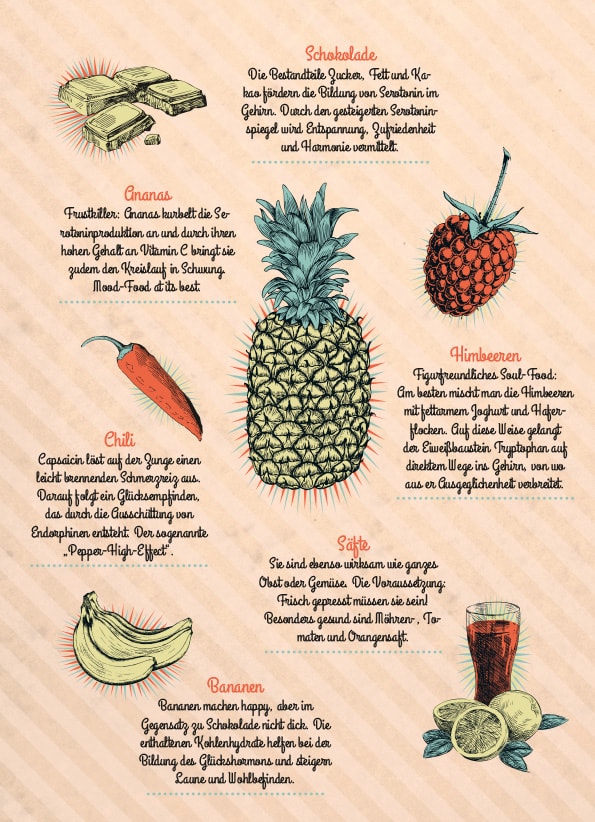 Schokolade
Die Bestandteile Zucker, Fett und Ka-
kao fördern die Bildung von Serotonin im
Gehirn. Durch den gesteigerten Serotonin-
spiegel wird Entspannung, Zufriedenheit
und Harmonie vermittelt.
Ananas
Frustkiller: Ananas kurbelt die Se-
rotoninproduktion an und durch ihren
hohen Gehalt an Vitamin C bringt sie
zudem den Kreislauf in Schwung.
Mood-Food at its best.
Himbeeren
Figurfreundliches Soul-Food:
Am besten mischt man die Himbeeren
mit fettarmem Joghurt und Hafer-
flocken. Auf diese Weise gelangt
der Eiweißbaustein Tryptophan auf
direktem Wege ins Gehirn, von wo
aus er Ausgeglichenheit verbreitet.
Chili
Capsaicin löst auf der Zunge einen
leicht brennenden Schmerzreiz aus.
Darauf folgt ein Glücksempfinden,
das durch die Ausschüttung von
Endorphinen entsteht. Der sogenannte
„Pepper-High-Effect".
Säfte
Sie sind ebenso wirksam wie ganzes
Obst oder Gemüse. Die Voraussetzung:
Frisch gepresst müssen sie sein!
Besonders gesund sind Möhren-, To-
maten und Orangensaft.
Bananen
Bananen machen happy, aber im
Gegensatz zu Schokolade nicht dick. Die
enthaltenen Kohlenhydrate helfen bei der
Bildung des Glückshormons und steigern
Laune und Wohlbefinden.